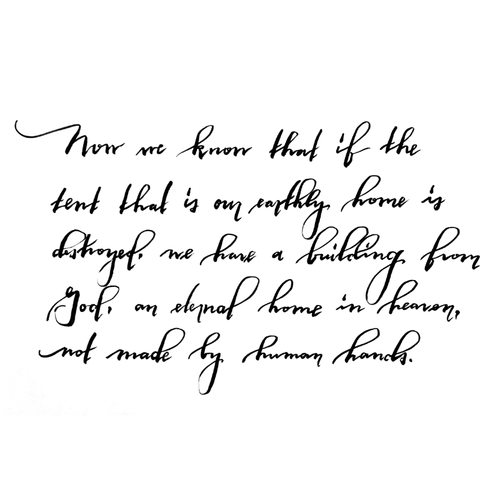 Now we know that if the
tent that is our earthly home is
destroyed, we have a building from
God, an eternal home in heaven,
not made by human hands.